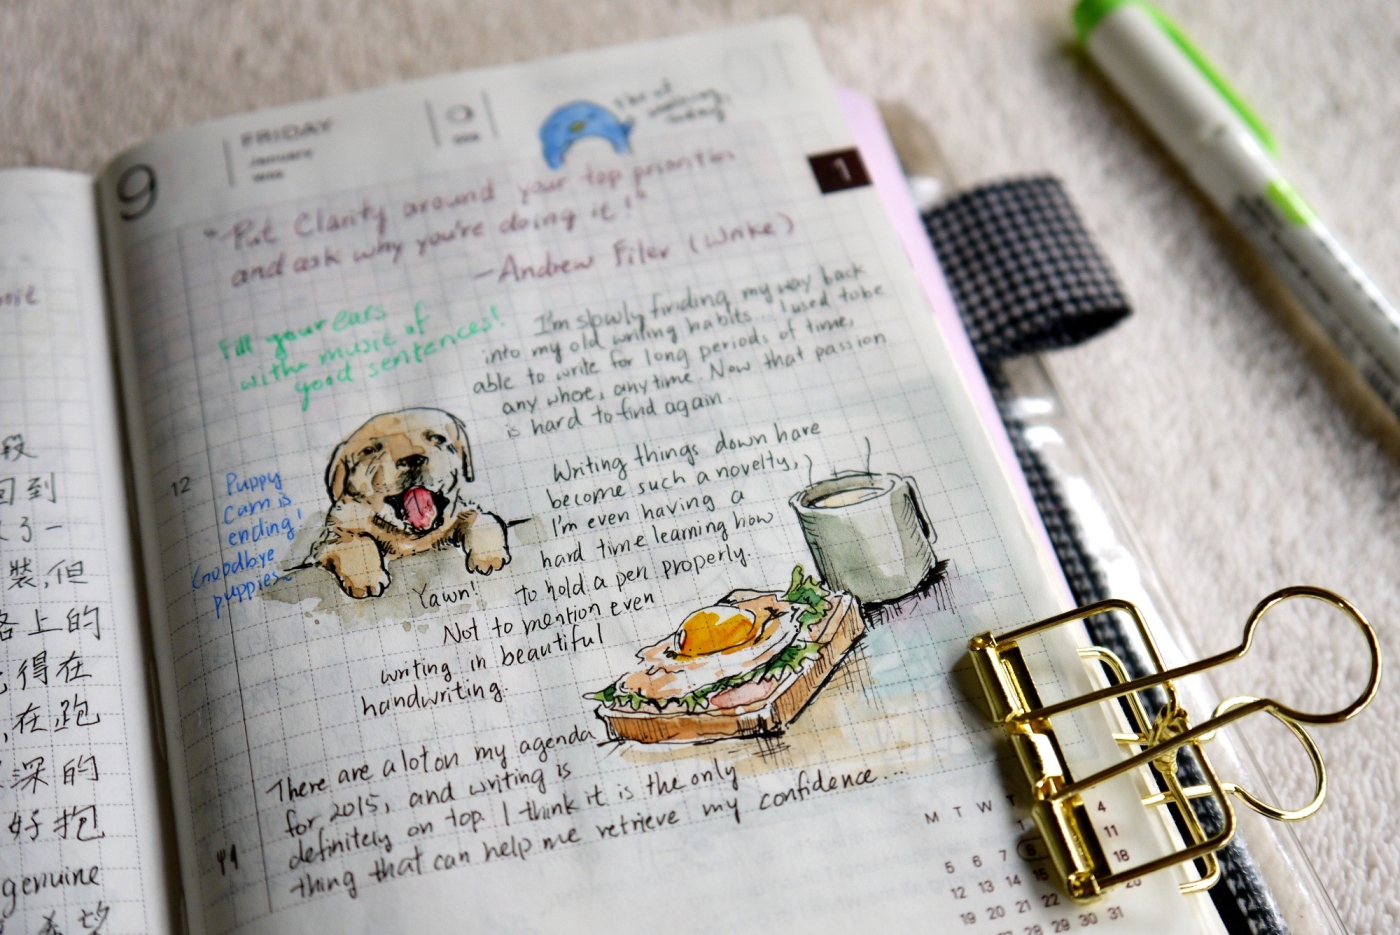 oie
段
回到
了一
裝,但
路上的
得在
,在跑
深的
好抱
genuine
希望
9
FRIDAY
January
1
"Put Clarity around your top priorities
and ask why you're doing it!"
—Andrew Filer (Wrike)
Fill your ears
with the music of
good sentences!
I'm slowly finding my way back
into my old writing habits... I used to be
able to write for long periods of time,
any where, any time. Now that passion
is hard to find again.
12
Puppy
cam is
ending!
Goodbye
puppies~
Yawn!
Writing things down have
become such a novelty,
I'm even having a
hard time learning how
to hold a pen properly.
Not to mention even
writing in beautiful
handwriting.
There are a lot on my agenda
for 2015, and writing is
definitely on top. I think it is the only
thing that can help me retrieve my confidence....
M T W T
4
5 6 7 8 11
12 13 14 15 18
19 20 21 22
27 28 29 30 31